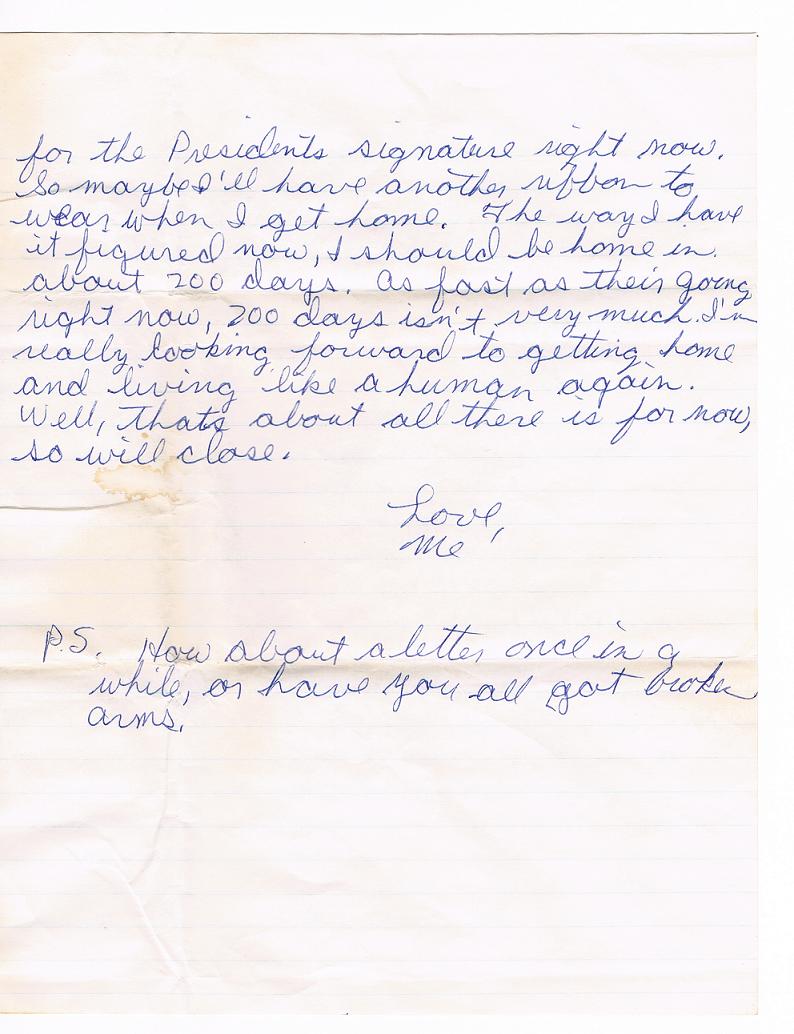 for the Presidents signature right now.
So maybe I'll have another ribbon to
wear when I get home. The way I have
it figured now, I should be home in
about 200 days. As fast as their going
right now, 200 days isn't very much. I'm
really looking forward to getting home
and living like a human again.
Well, thats about all there is for now,
so will close.
Love,
Me
P.S. How about a letter once in a
while, or have you all got broken
arms.